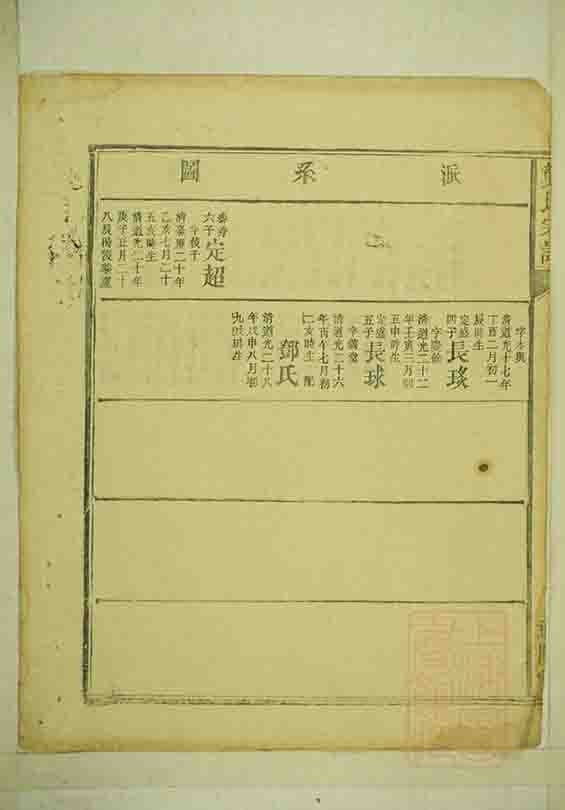 派系圖
六子定超
字俊千
清嘉慶二十年
乙亥七月二十
五亥時生
清道光二十年
庚子正月二十
八辰時歿葬蘆
字本興
清道光十七年
丁酉二月初一
辰時生
定盛
四子長琰
清道光二十二
年壬寅三月初
五申時生
定盛
五子長球
清道光二十六
年丙午七月初
二亥時生配
鄧氏
清道光二十八
年戊申八月初
九時生